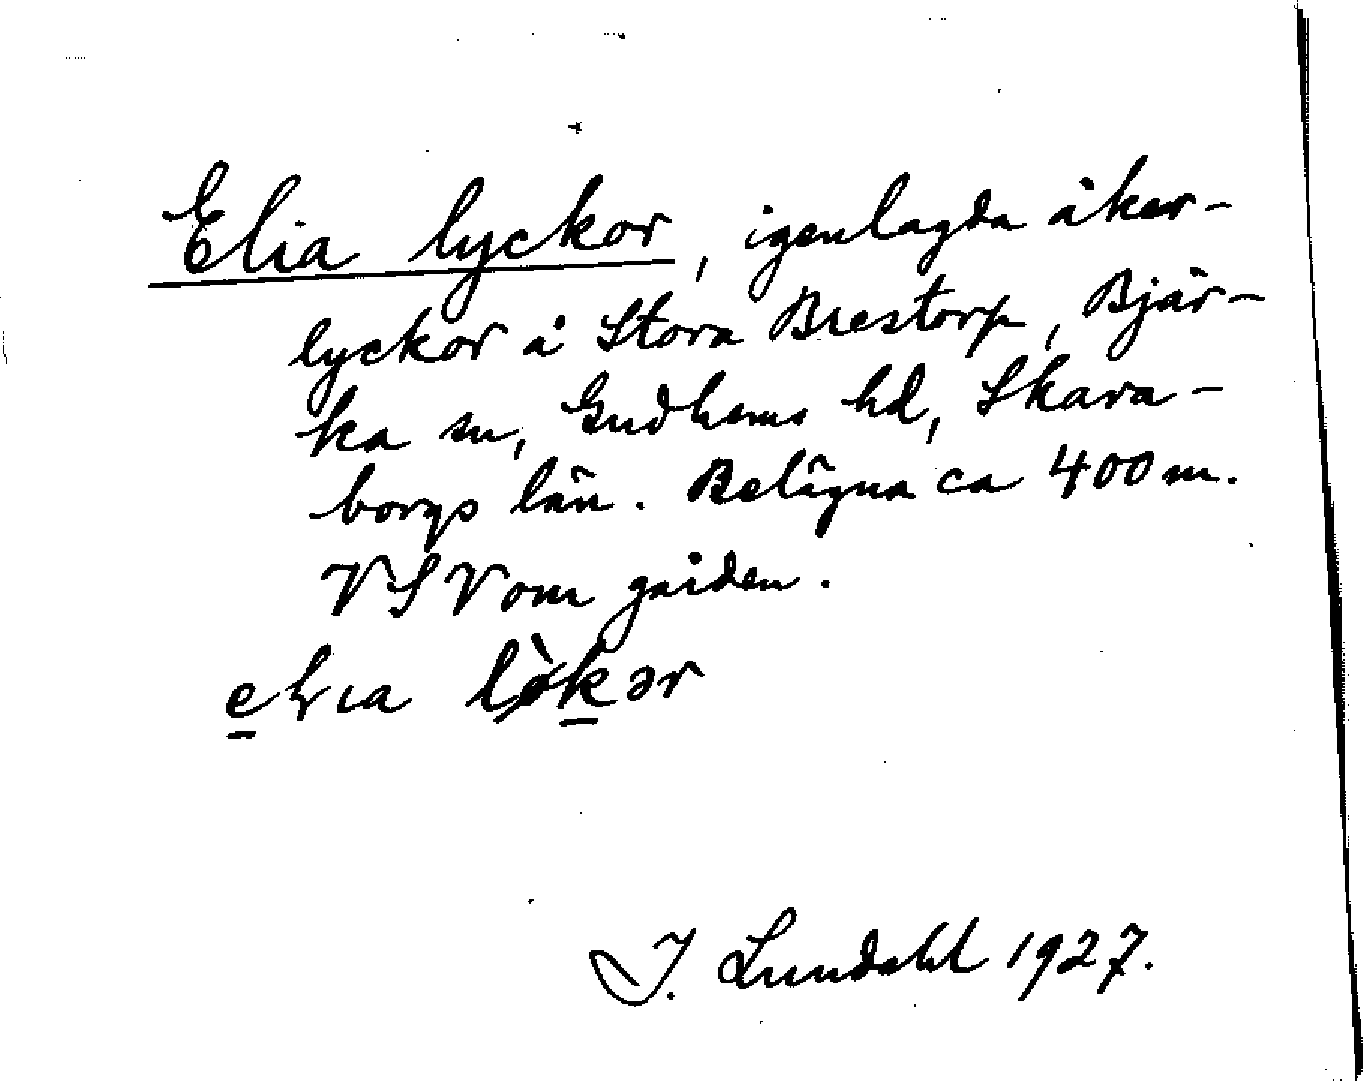 Elia lyckor, igenlagda åker-
lyckor å Stora Brestorp, Bjär-
ka sn, Gudhems hd, Skara-
borgs län. Belägna ca 400 m.
VSV om gården.
I. Lundahl 1927.